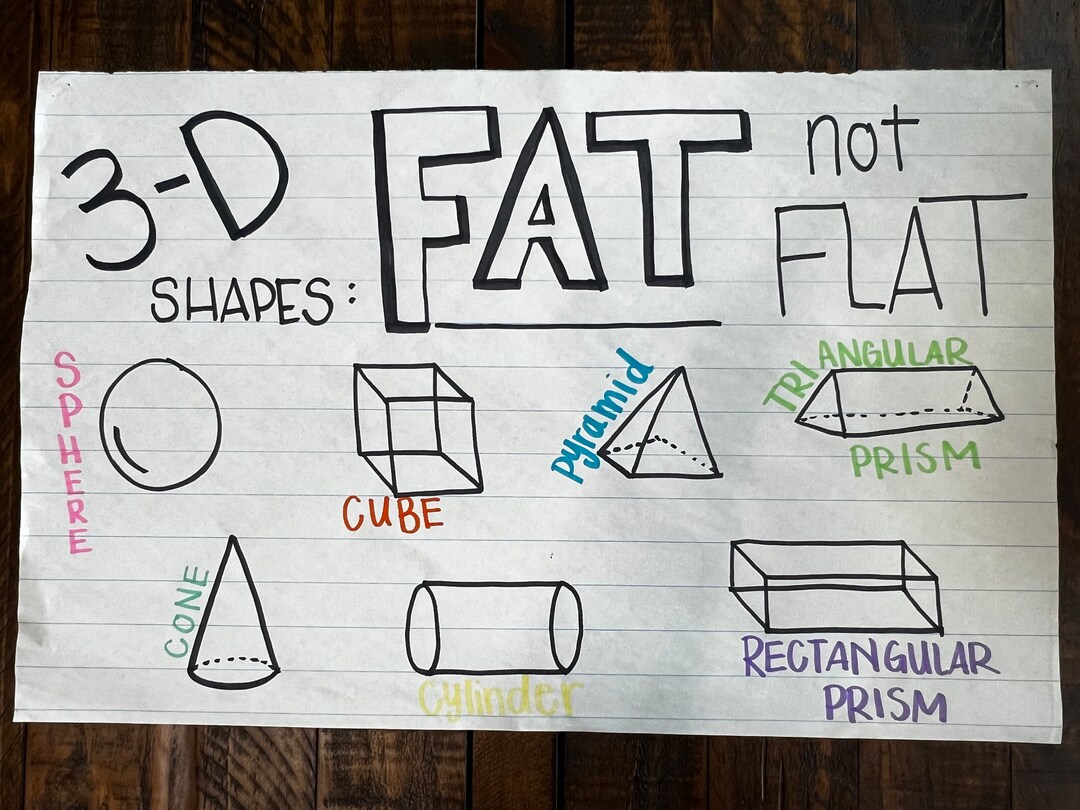 3-D
SHAPES:
FAT
not
FLAT
SPHERE
CUBE
Pyramid
TRIANGULAR
PRISM
CONE
Cylinder
RECTANGULAR
PRISM